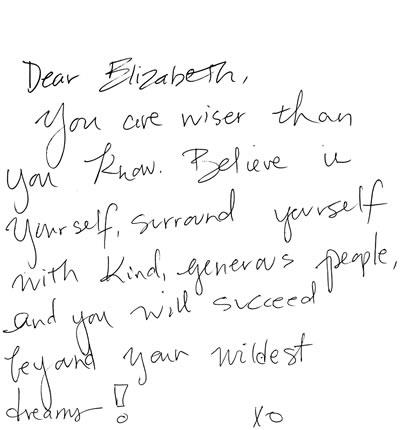 Dear Elizabeth,
You are wiser than
you know. Believe in
yourself, surround yourself
with kind, generous people,
and you will succeed
beyond your wildest
dreams!
XO